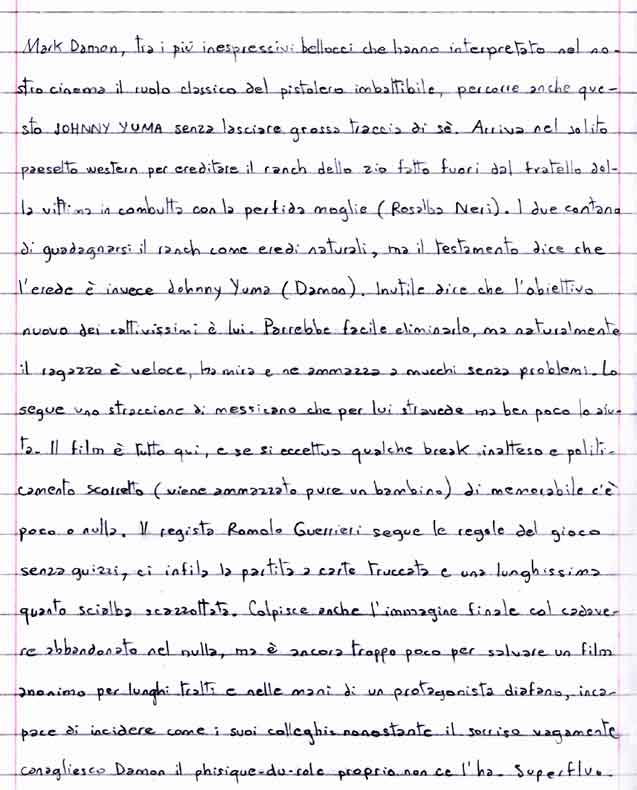 Mark Damon, tra i più inespressivi bellocci che hanno interpretato nel no-
stro cinema il ruolo classico del pistolero imbattibile, percorre anche que-
sto JOHNNY YUMA senza lasciare grossa traccia di sè. Arriva nel solito
paesetto western per ereditare il ranch dello zio fatto fuori dal fratello del-
la vittima in combutta con la perfida moglie (Rosalba Neri). I due contano
di guadagnarsi il ranch come eredi naturali, ma il testamento dice che
l'erede è invece Johnny Yuma (Damon). Inutile dire che l'obiettivo
nuovo dei cattivissimi è lui. Parrebbe facile eliminarlo, ma naturalmente
il ragazzo è veloce, ha mira e ne ammazza a mucchi senza problemi. Lo
segue uno straccione di messicano che per lui stravede ma ben poco lo aiu-
ta. Il film è tutto qui, e se si eccettua qualche break inatteso e politi-
camente scorretto (viene ammazzato pure un bambino) di memorabile c'è
poco o nulla. Il regista Romolo Guerrieri segue le regole del gioco
senza guizzi, ci infila la partita a carte truccata e una lunghissima
quanto scialba scazzottata. Colpisce anche l'immagine finale col cadave-
re abbandonato nel nulla, ma è ancora troppo poco per salvare un film
anonimo per lunghi tratti e nelle mani di un protagonista diafano, inca-
pace di incidere come i suoi colleghi: nonostante il sorriso vagamente
canagliesco Damon il phisique-du-role proprio non ce l'ha. Superfluo.